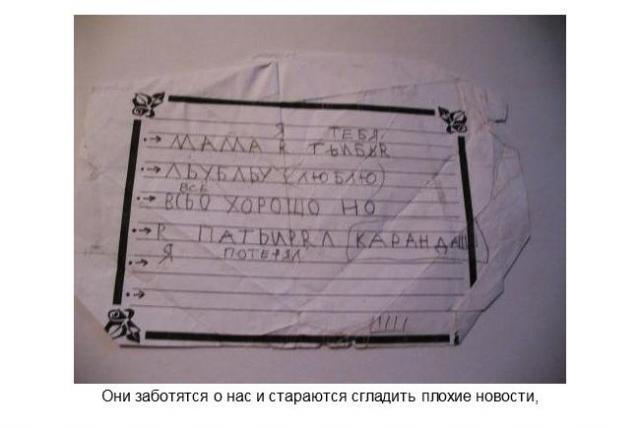 Я ТЕБЯ
МАМА R ТЬИБЬR
ЛЬУБЛЬУ (ЛЮБЛЮ)
ВСЕ
ВСЬО ХОРОШО НО
R ПАТЬИРRЛ (КАРАНДАШ)
Я ПОТЕРЯЛ
!!!!!
Они заботятся о нас и стараются сгладить плохие новости,